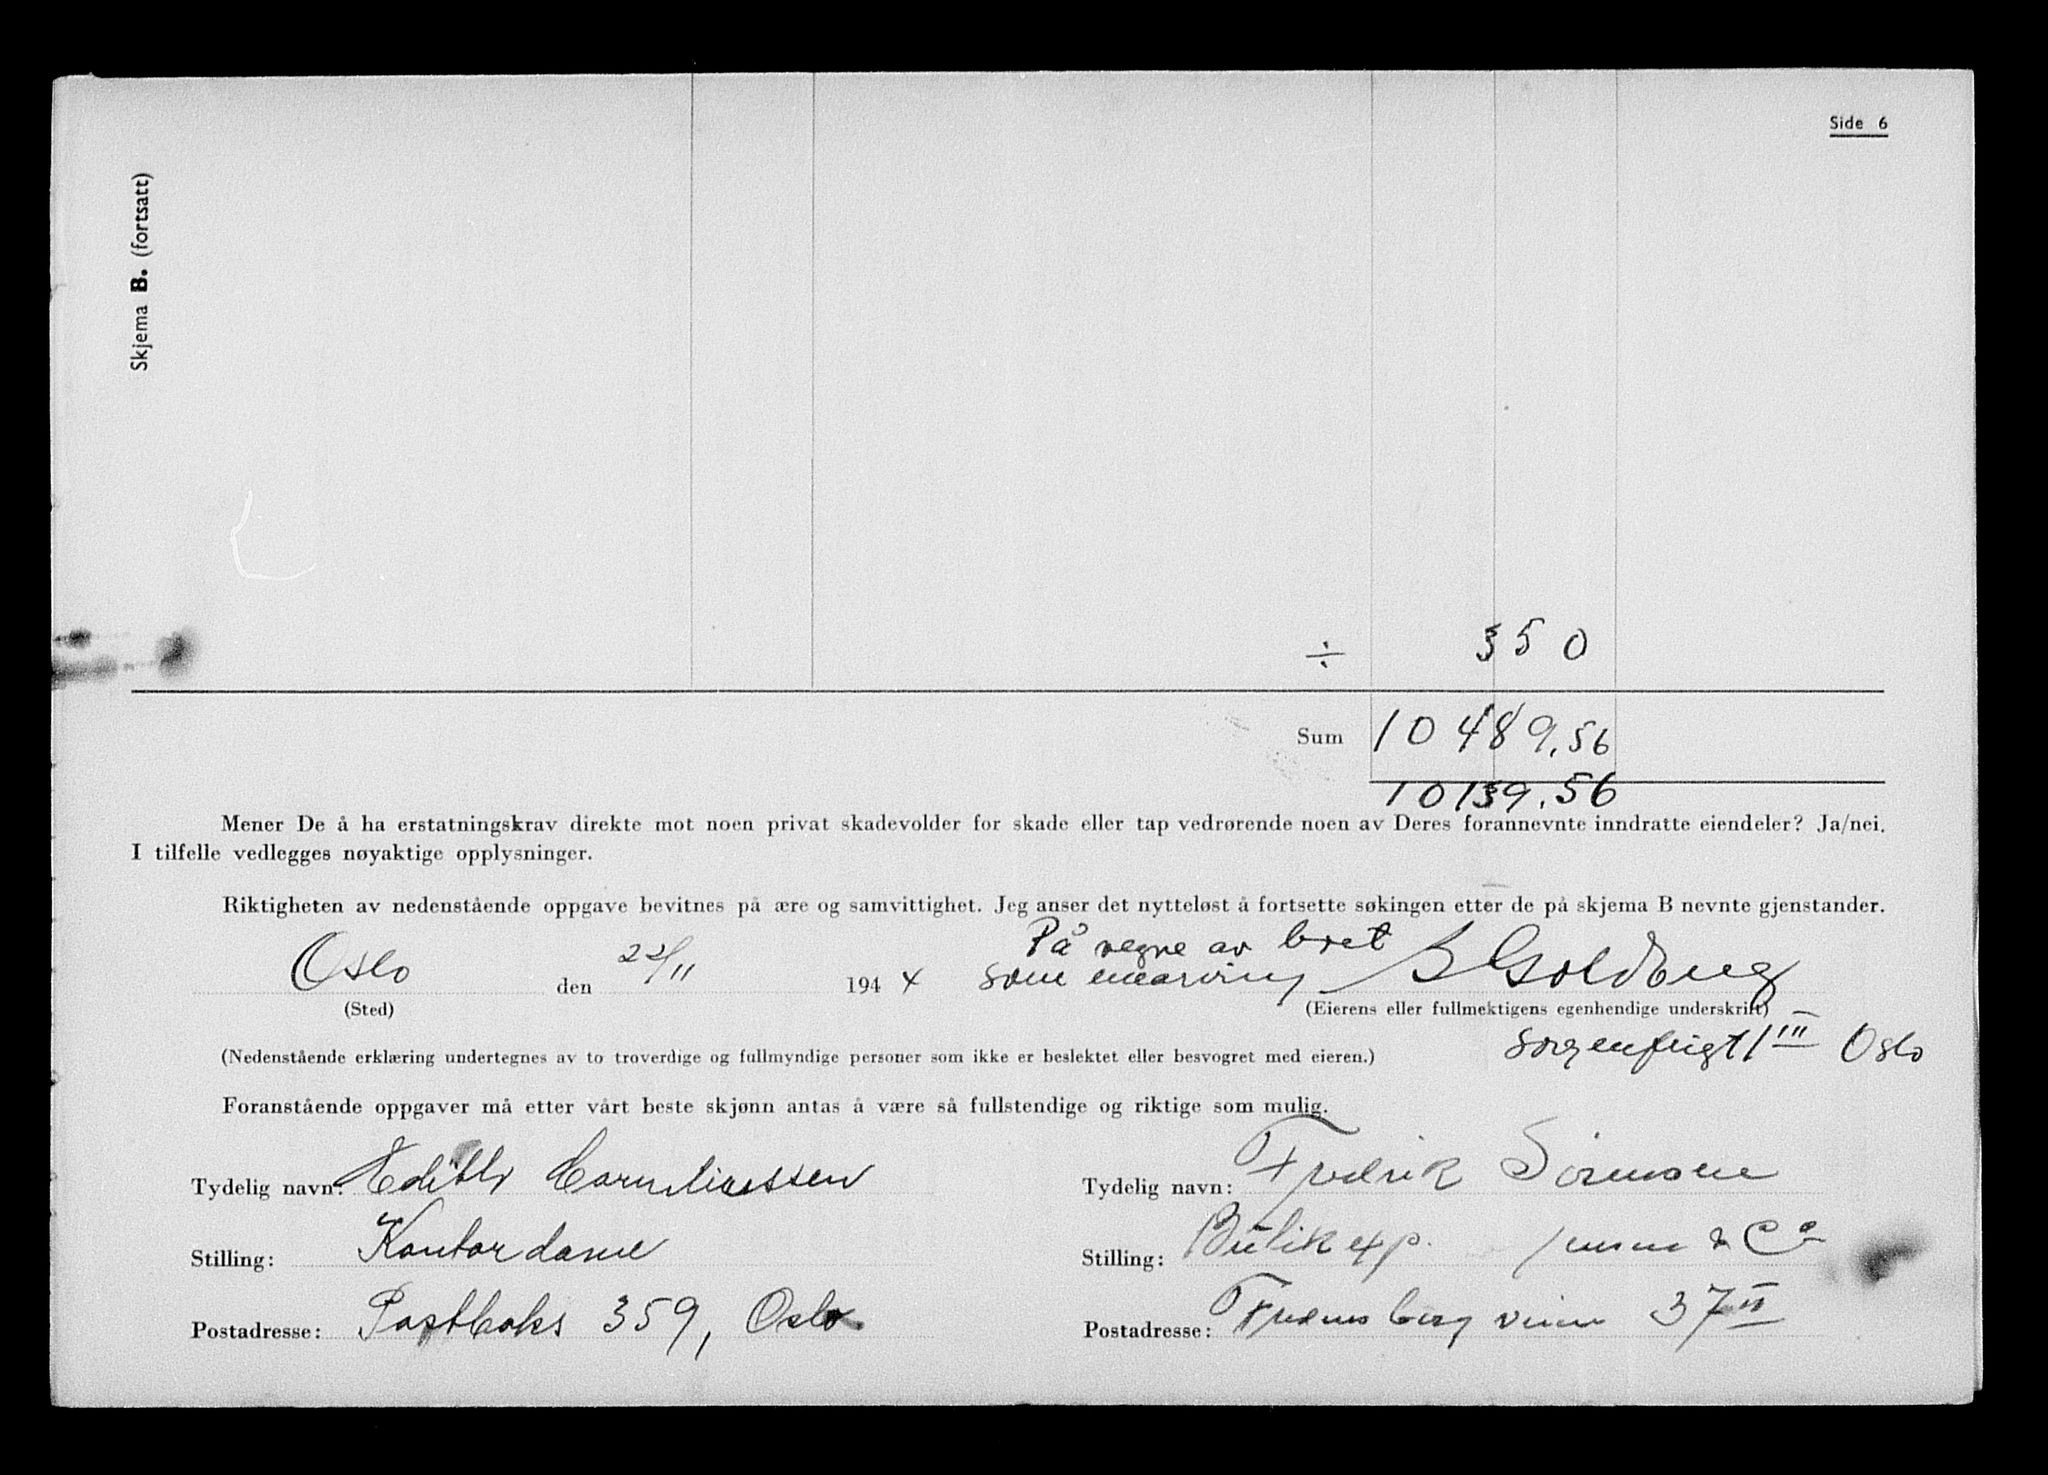 Side 6
Skjema B. (fortsatt)
÷ 350
Sum 10489,56
10139,56
Mener De å ha erstatningskrav direkte mot noen privat skadevolder for skade eller tap vedrørende noen av Deres forannevnte inndratte eiendeler? Ja/nei.
I tilfelle vedlegges nøyaktige opplysninger.
Riktigheten av nedenstående oppgave bevitnes på ære og samvittighet. Jeg anser det nytteløst å fortsette søkingen etter de på skjema B nevnte gjenstander.
På vegne av boet
Oslo den 22/11 194 som enearving Goldberg
(Sted) (Eierens eller fullmektigens egenhendige underskrift)
Sorgenfrigt 1 III Oslo
(Nedenstående erklæring undertegnes av to troverdige og fullmyndige personer som ikke er beslektet eller besvogret med eieren.)
Foranstående oppgaver må etter vårt beste skjønn antas å være så fullstendige og riktige som mulig.
Tydelig navn: Edith Corneliussen Tydelig navn: Fredrik Sørensen
Stilling: Kontordame Stilling: Butikexp. & Co
Postadresse: Postboks 359, Oslo Postadresse: 37 II